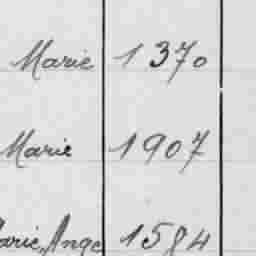 Marie 1370
Marie 1907
Marie Ange 1584